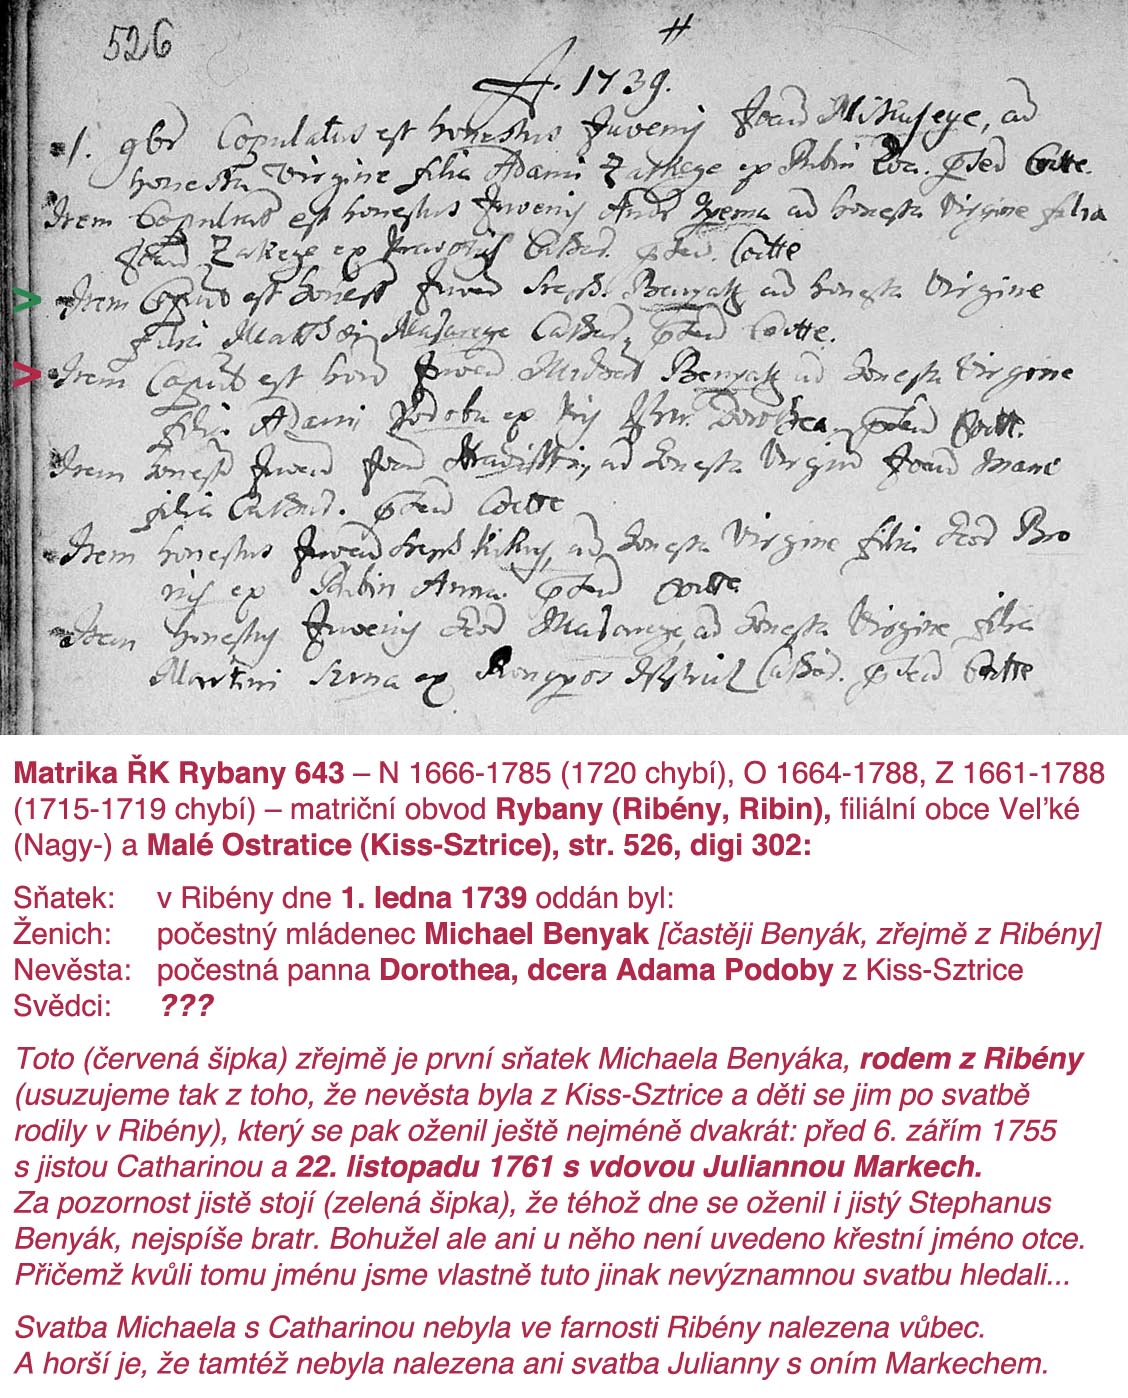 526
#
A. 1739.
1. 9br Copulatus est honestus Juvenis Joan Mikusege, ad
honesta Virgine filia Adami Zatkege ex Ribin Eva. Cotte.
Item Copulat est honestus Juvenis And ad honesta Virgine filia
Joan Zatkege ex Cathar. Cotte
> Item est honest Juven Steph. Benyak ad honesta Virgine
filia Matthaei Cathar. Cotte.
> Item est hon Juven Michael Benyak ad honesta Virgine
filia Adami Podoba ex Kis Dorothea Cotte.
Item honest Juven Joan ad honesta Virgin Joan
filia Cathar. Cotte
Item honestus Juven Steph ad honesta Virgine filia Bro
nis ex Ribin Anna. Cotte
Item honestus Juvenis ad honesta Virgine filia
Martini ex Cathar. Cotte
Matrika ŘK Rybany 643 – N 1666-1785 (1720 chybí), O 1664-1788, Z 1661-1788
(1715-1719 chybí) – matriční obvod Rybany (Ribény, Ribin), filiální obce Veľké
(Nagy-) a Malé Ostratice (Kiss-Sztrice), str. 526, digi 302:
Sňatek: v Ribény dne 1. ledna 1739 oddán byl:
Ženich: počestný mládenec Michael Benyak [častěji Benyák, zřejmě z Ribény]
Nevěsta: počestná panna Dorothea, dcera Adama Podoby z Kiss-Sztrice
Svědci: ???
Toto (červená šipka) zřejmě je první sňatek Michaela Benyáka, rodem z Ribény
(usuzujeme tak z toho, že nevěsta byla z Kiss-Sztrice a děti se jim po svatbě
rodily v Ribény), který se pak oženil ještě nejméně dvakrát: před 6. zářím 1755
s jistou Catharinou a 22. listopadu 1761 s vdovou Juliannou Markech.
Za pozornost jistě stojí (zelená šipka), že téhož dne se oženil i jistý Stephanus
Benyák, nejspíše bratr. Bohužel ale ani u něho není uvedeno křestní jméno otce.
Přičemž kvůli tomu jménu jsme vlastně tuto jinak nevýznamnou svatbu hledali...
Svatba Michaela s Catharinou nebyla ve farnosti Ribény nalezena vůbec.
A horší je, že tamtéž nebyla nalezena ani svatba Julianny s oním Markechem.